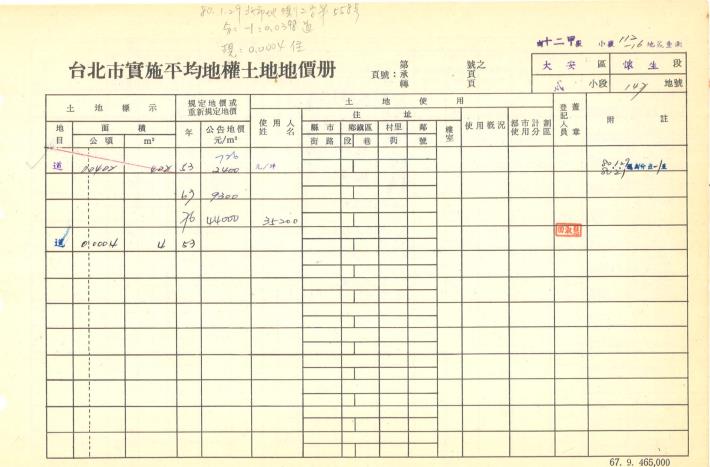 80.1.29
分=-1=0.0398 道
現=0.0004 住
十二甲 小段 112-16
第 號之
頁號:承 頁
轉 頁
台北市實施平均地權土地地價冊
大安 區 段
小段 147 地號
土地標示
規定地價或重新規定地價
土地使用
地目
面積
公頃
m²
年
公告地價 元/m²
使用人姓名
住址
縣市 鄉鎮區 村里 鄰
街路 段 巷 街 號
樓室
使用概況
都市計劃使用分區
登記人員蓋章
附註
道 0.0402 402 53 726 2400 元/坪
80.1.29
67 9300
76 44000 35200
道 0.0004 4 53
67. 9. 465,000